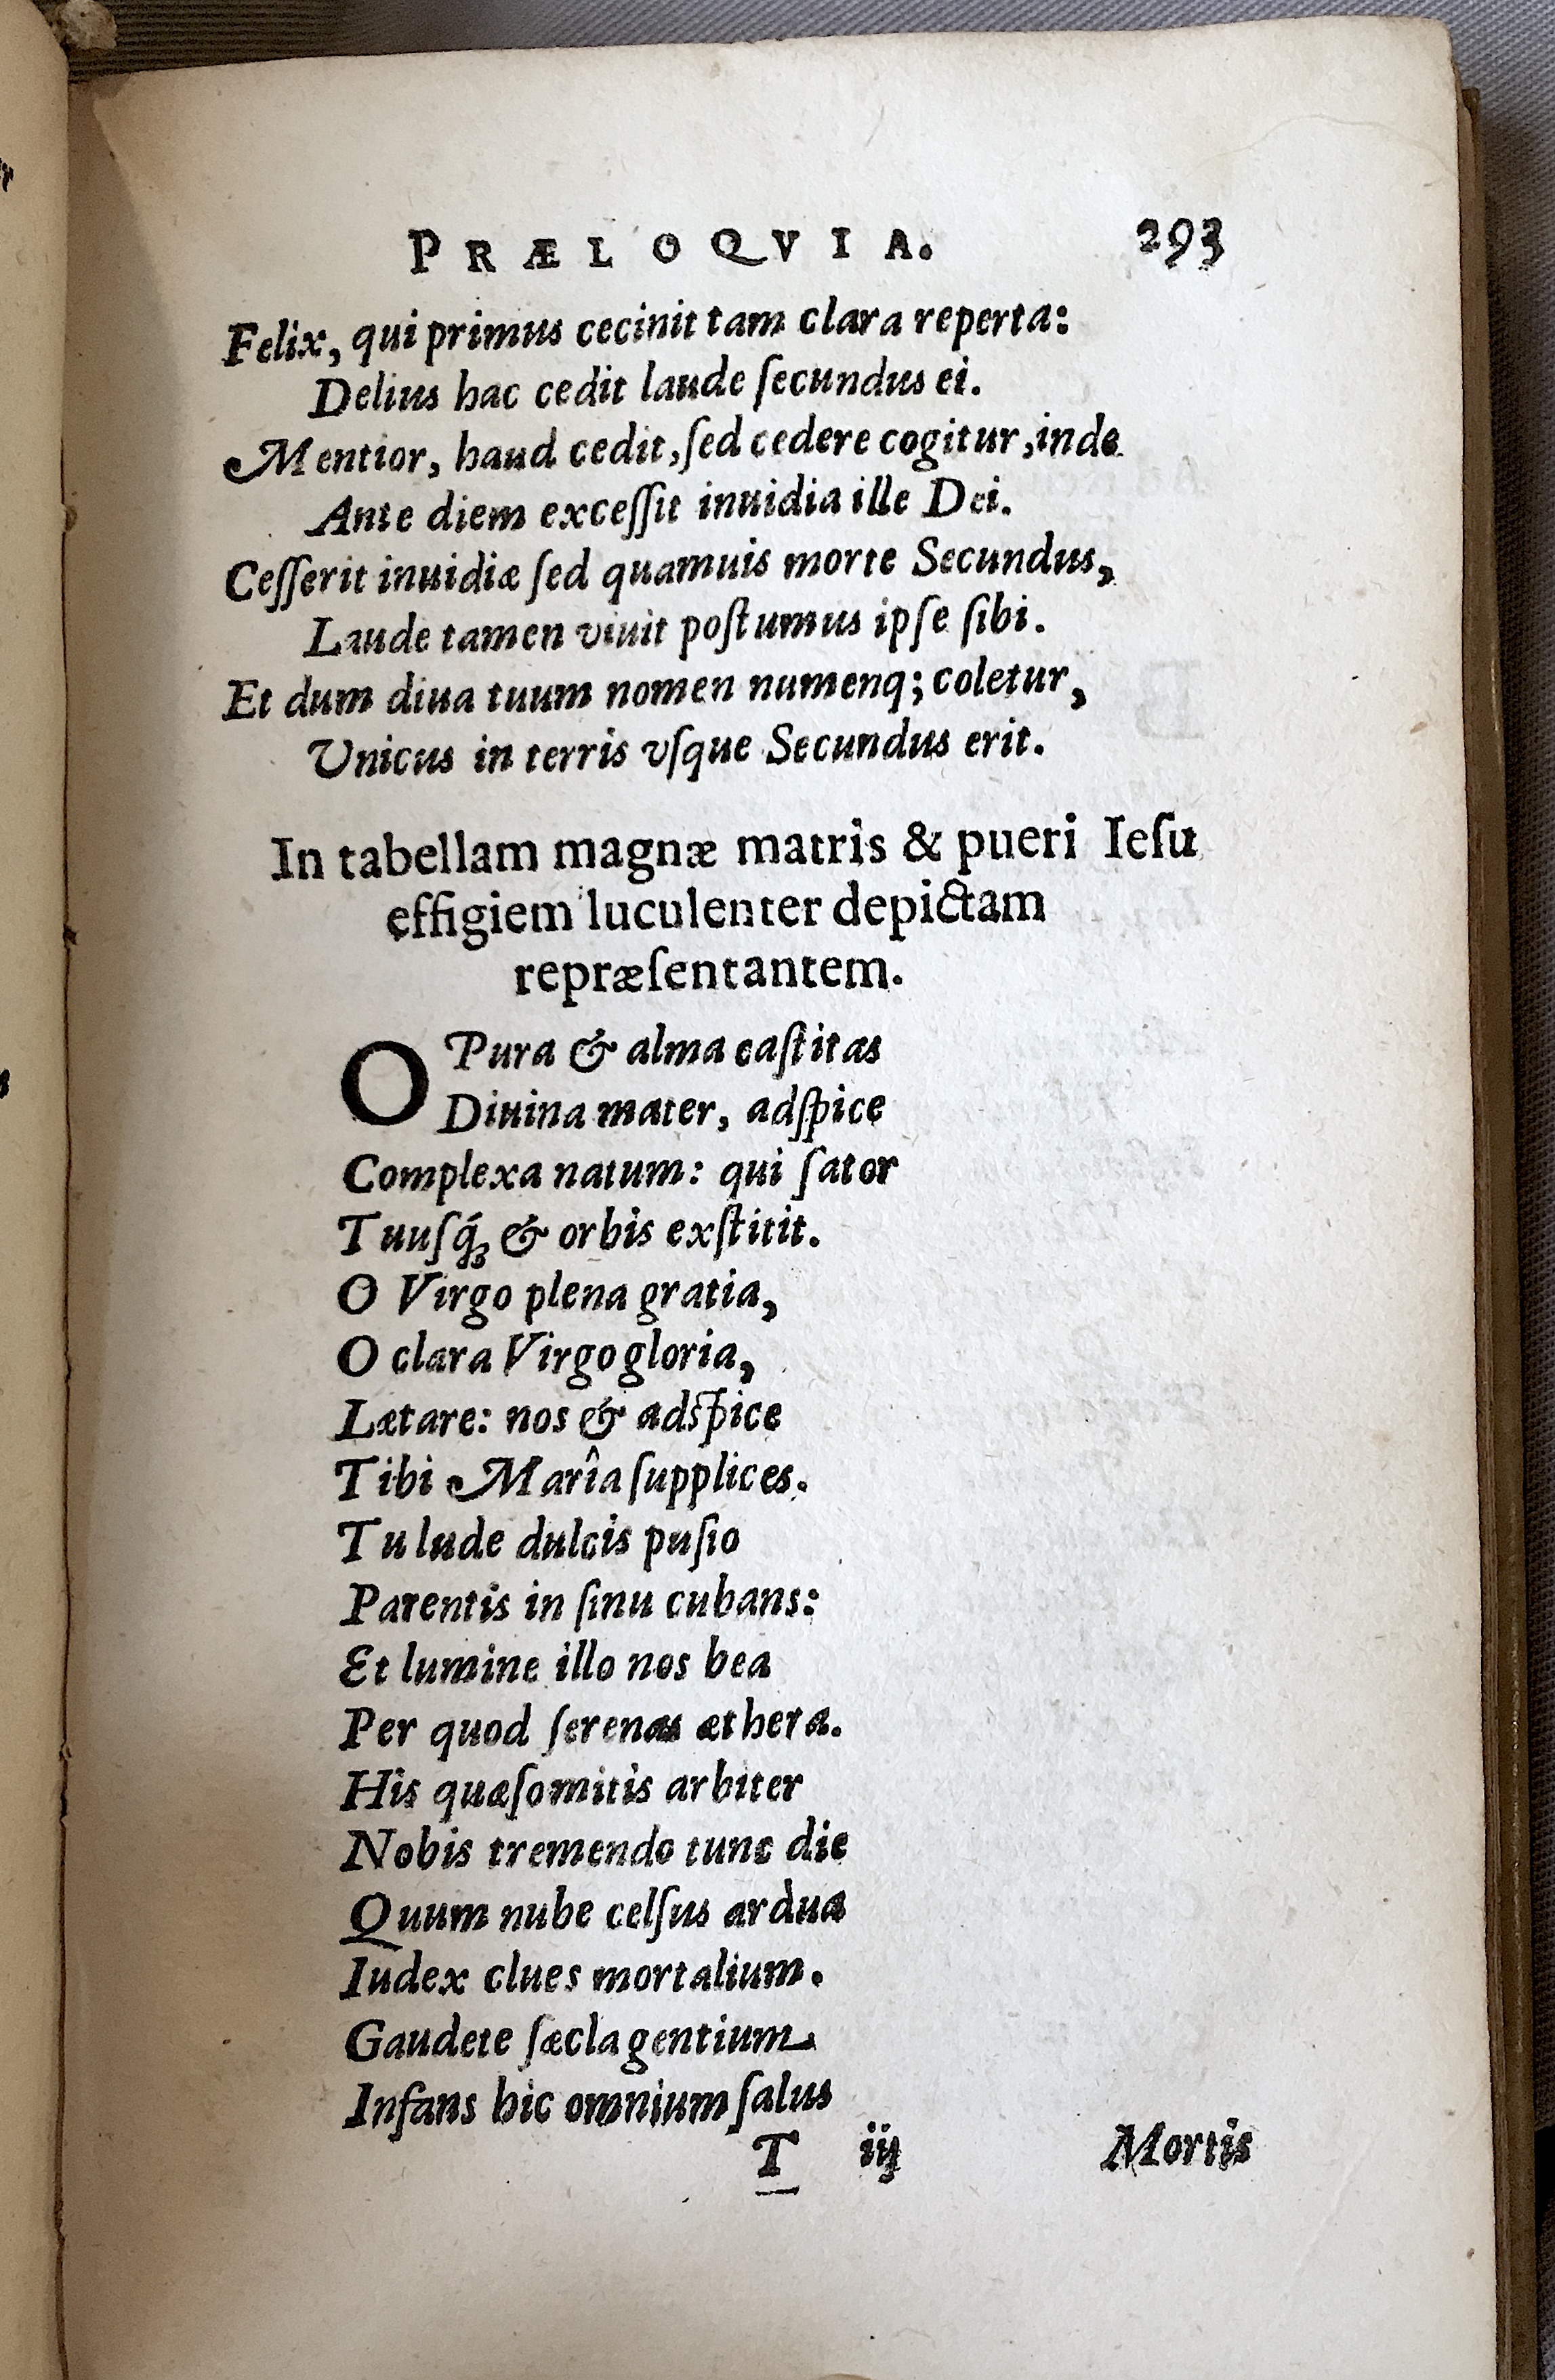 PRÆLOQVIA. 293
Felix, qui primus cecinit tam clara reperta:
Delius hac cedit laude ſecundus ei.
Mentior, haud cedit, ſed cedere cogitur, inde
Ante diem exceſſit inuidia ille Dei.
Ceſſerit inuidiæ ſed quamuis morte Secundus,
Laude tamen viuit poſtumus ipſe ſibi.
Et dum diua tuum nomen numenq; coletur,
Vnicus in terris vſque Secundus erit.
In tabellam magnæ matris & pueri Ieſu
effigiem luculenter depictam
repræſentantem.
O Pura & alma caſtitas
Diuina mater, adſpice
Complexa natum: qui ſator
Tuuſq́; & orbis exſtitit.
O Virgo plena gratia,
O clara Virgo gloria,
Lætare: nos & adſpice
Tibi Marîa ſupplices.
Tu lude dulcis puſio
Parentis in ſinu cubans:
Et lumine illo nos bea
Per quod ſerenas æthera.
His quæſo mitis arbiter
Nobis tremendo tunc die
Quum nube celſus ardua
Iudex clues mortalium.
Gaudete ſæcla gentium
Infans hic omnium ſalus
T iij Mortis